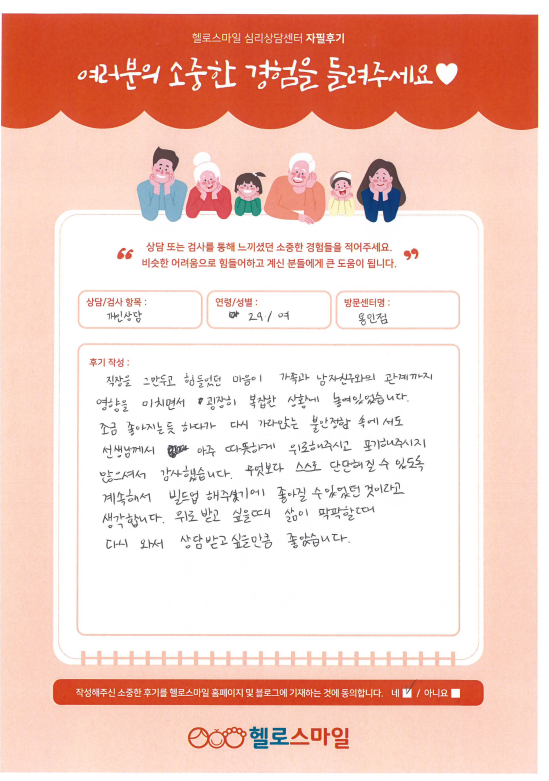 헬로스마일 심리상담센터 자필후기
여러분의 소중한 경험을 들려주세요
상담 또는 검사를 통해 느끼셨던 소중한 경험들을 적어주세요.
비슷한 어려움으로 힘들어하고 계신 분들에게 큰 도움이 됩니다.
상담/검사 항목 :
개인상담
연령/성별 :
29 / 여
방문센터명 :
용인점
후기 작성 :
직장을 그만두고 힘들었던 마음이 가족과 남자친구와의 관계까지
영향을 미치면서 굉장히 복잡한 상황에 놓여있었습니다.
조금 좋아지는듯 하다가 다시 가라앉는 불안정함 속에서도
선생님께서 아주 따뜻하게 위로해주시고 포기해주시지
않으셔서 감사했습니다. 무엇보다 스스로 단단해질 수 있도록
계속해서 빌드업 해주셨기에 좋아질 수 있었던 것이라고
생각합니다. 위로 받고 싶을때 삶이 팍팍할때
다시 와서 상담받고 싶을만큼 좋았습니다.
작성해주신 소중한 후기를 헬로스마일 홈페이지 및 블로그에 기재하는 것에 동의합니다. 네 / 아니요
헬로스마일